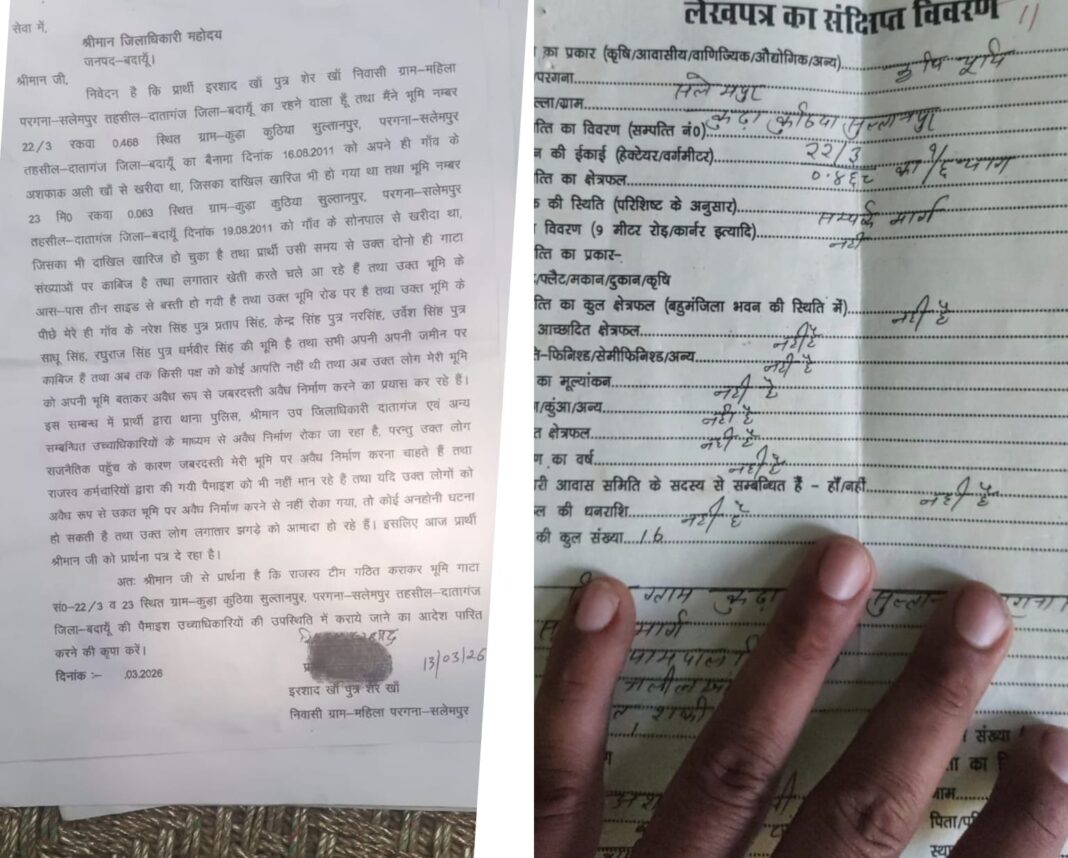 सेवा में,
श्रीमान जिलाधिकारी महोदय
जनपद–बदायूँ।
श्रीमान जी,
निवेदन है कि प्रार्थी इरशाद खाँ पुत्र शेर खाँ निवासी ग्राम–महिला
परगना–सलेमपुर तहसील–दातागंज जिला–बदायूँ का रहने वाला हूँ तथा मैंने भूमि नम्बर
22/3 रकवा 0.468 स्थित ग्राम–कुड़ा कुठिया सुल्तानपुर, परगना–सलेमपुर
तहसील–दातागंज जिला–बदायूँ का बैनामा दिनांक 16.08.2011 को अपने ही गाँव के
अशफाक अली खाँ से खरीदा था, जिसका दाखिल खारिज भी हो गया था तथा भूमि नम्बर
23 मि0 रकवा 0.063 स्थित ग्राम–कुड़ा कुठिया सुल्तानपुर, परगना–सलेमपुर
तहसील–दातागंज जिला–बदायूँ दिनांक 19.08.2011 को गाँव के सोनपाल से खरीदा था,
जिसका भी दाखिल खारिज हो चुका है तथा प्रार्थी उसी समय से उक्त दोनो ही गाटा
संख्याओं पर काबिज है तथा लगातार खेती करते चले आ रहे हैं तथा उक्त भूमि के
आस–पास तीन साइड से बस्ती हो गयी है तथा उक्त भूमि रोड पर है तथा उक्त भूमि के
पीछे मेरे ही गाँव के नरेश सिंह पुत्र प्रताप सिंह, केन्द्र सिंह पुत्र नरसिंह, उर्वेश सिंह पुत्र
साधू सिंह, रघुराज सिंह पुत्र धर्मवीर सिंह की भूमि है तथा सभी अपनी अपनी जमीन पर
काबिज हैं तथा अब तक किसी पक्ष को कोई आपति नहीं थी तथा अब उक्त लोग मेरी भूमि
को अपनी भूमि बताकर अवैध रूप से जबरदस्ती अवैध निर्माण करने का प्रयास कर रहे हैं।
इस सम्बन्ध में प्रार्थी द्वारा थाना पुलिस, श्रीमान उप जिलाधिकारी दातागंज एवं अन्य
सम्बन्धित उच्चाधिकारियों के माध्यम से अवैध निर्माण रोका जा रहा है, परन्तु उक्त लोग
राजनैतिक पहुँच के कारण जबरदस्ती मेरी भूमि पर अवैध निर्माण करना चाहते हैं तथा
राजस्व कर्मचारियों द्वारा की गयी पैमाइश को भी नहीं मान रहे हैं तथा यदि उक्त लोगों को
अवैध रूप से उकत भूमि पर अवैध निर्माण करने से नहीं रोका गया, तो कोई अनहोनी घटना
हो सकती है तथा उक्त लोग लगातार झगड़े को आमादा हो रहे हैं। इसलिए आज प्रार्थी
श्रीमान जी को प्रार्थना पत्र दे रहा है।
अतः श्रीमान जी से प्रार्थना है कि राजस्व टीम गठित कराकर भूमि गाटा
सं0–22/3 व 23 स्थित ग्राम–कुड़ा कुठिया सुल्तानपुर, परगना–सलेमपुर तहसील–दातागंज
जिला–बदायूँ की पैमाइश उच्चाधिकारियों की उपस्थिति में कराये जाने का आदेश पारित
करने की कृपा करें।
दिनांक :– .03.2026
13/03/26
इरशाद खाँ पुत्र शेर खाँ
निवासी ग्राम–महिला परगना–सलेमपुर
लेखपत्र का संक्षिप्त विवरण 11
का प्रकार (कृषि/आवासीय/वाणिज्यिक/औद्योगिक/अन्य) कृषि भूमि
परगना सलेमपुर
ल्ला/ग्राम कुढ़ा कुठिया सुल्तानपुर
त्ति का विवरण (सम्पत्ति नं0) २२/३
न की ईकाई (हेक्टेयर/वर्गमीटर) ०.४६८ का १/६ भाग
त्ति का क्षेत्रफल
क की स्थिति (परिशिष्ट के अनुसार) सम्पर्क मार्ग
विवरण (9 मीटर रोड/कार्नर इत्यादि) नहीं
त्ति का प्रकार–
/फ्लैट/मकान/दुकान/कृषि
त्ति का कुल क्षेत्रफल (बहुमंजिला भवन की स्थिति में) नहीं है
आच्छादित क्षेत्रफल नहीं है
ते–फिनिश्ड/सेमीफिनिश्ड/अन्य नहीं है
का मूल्यांकन नहीं है
/कुंआ/अन्य नहीं है
त क्षेत्रफल नहीं है
ण का वर्ष नहीं है
री आवास समिति के सदस्य से सम्बन्धित हैं – हाँ/नहीं नहीं है
ल की धनराशि नहीं है
की कुल संख्या 16
ग्राम कुढ़ा सुल्तान
मार्ग
संख्या
ता का
नाम
पिता/प
स्था